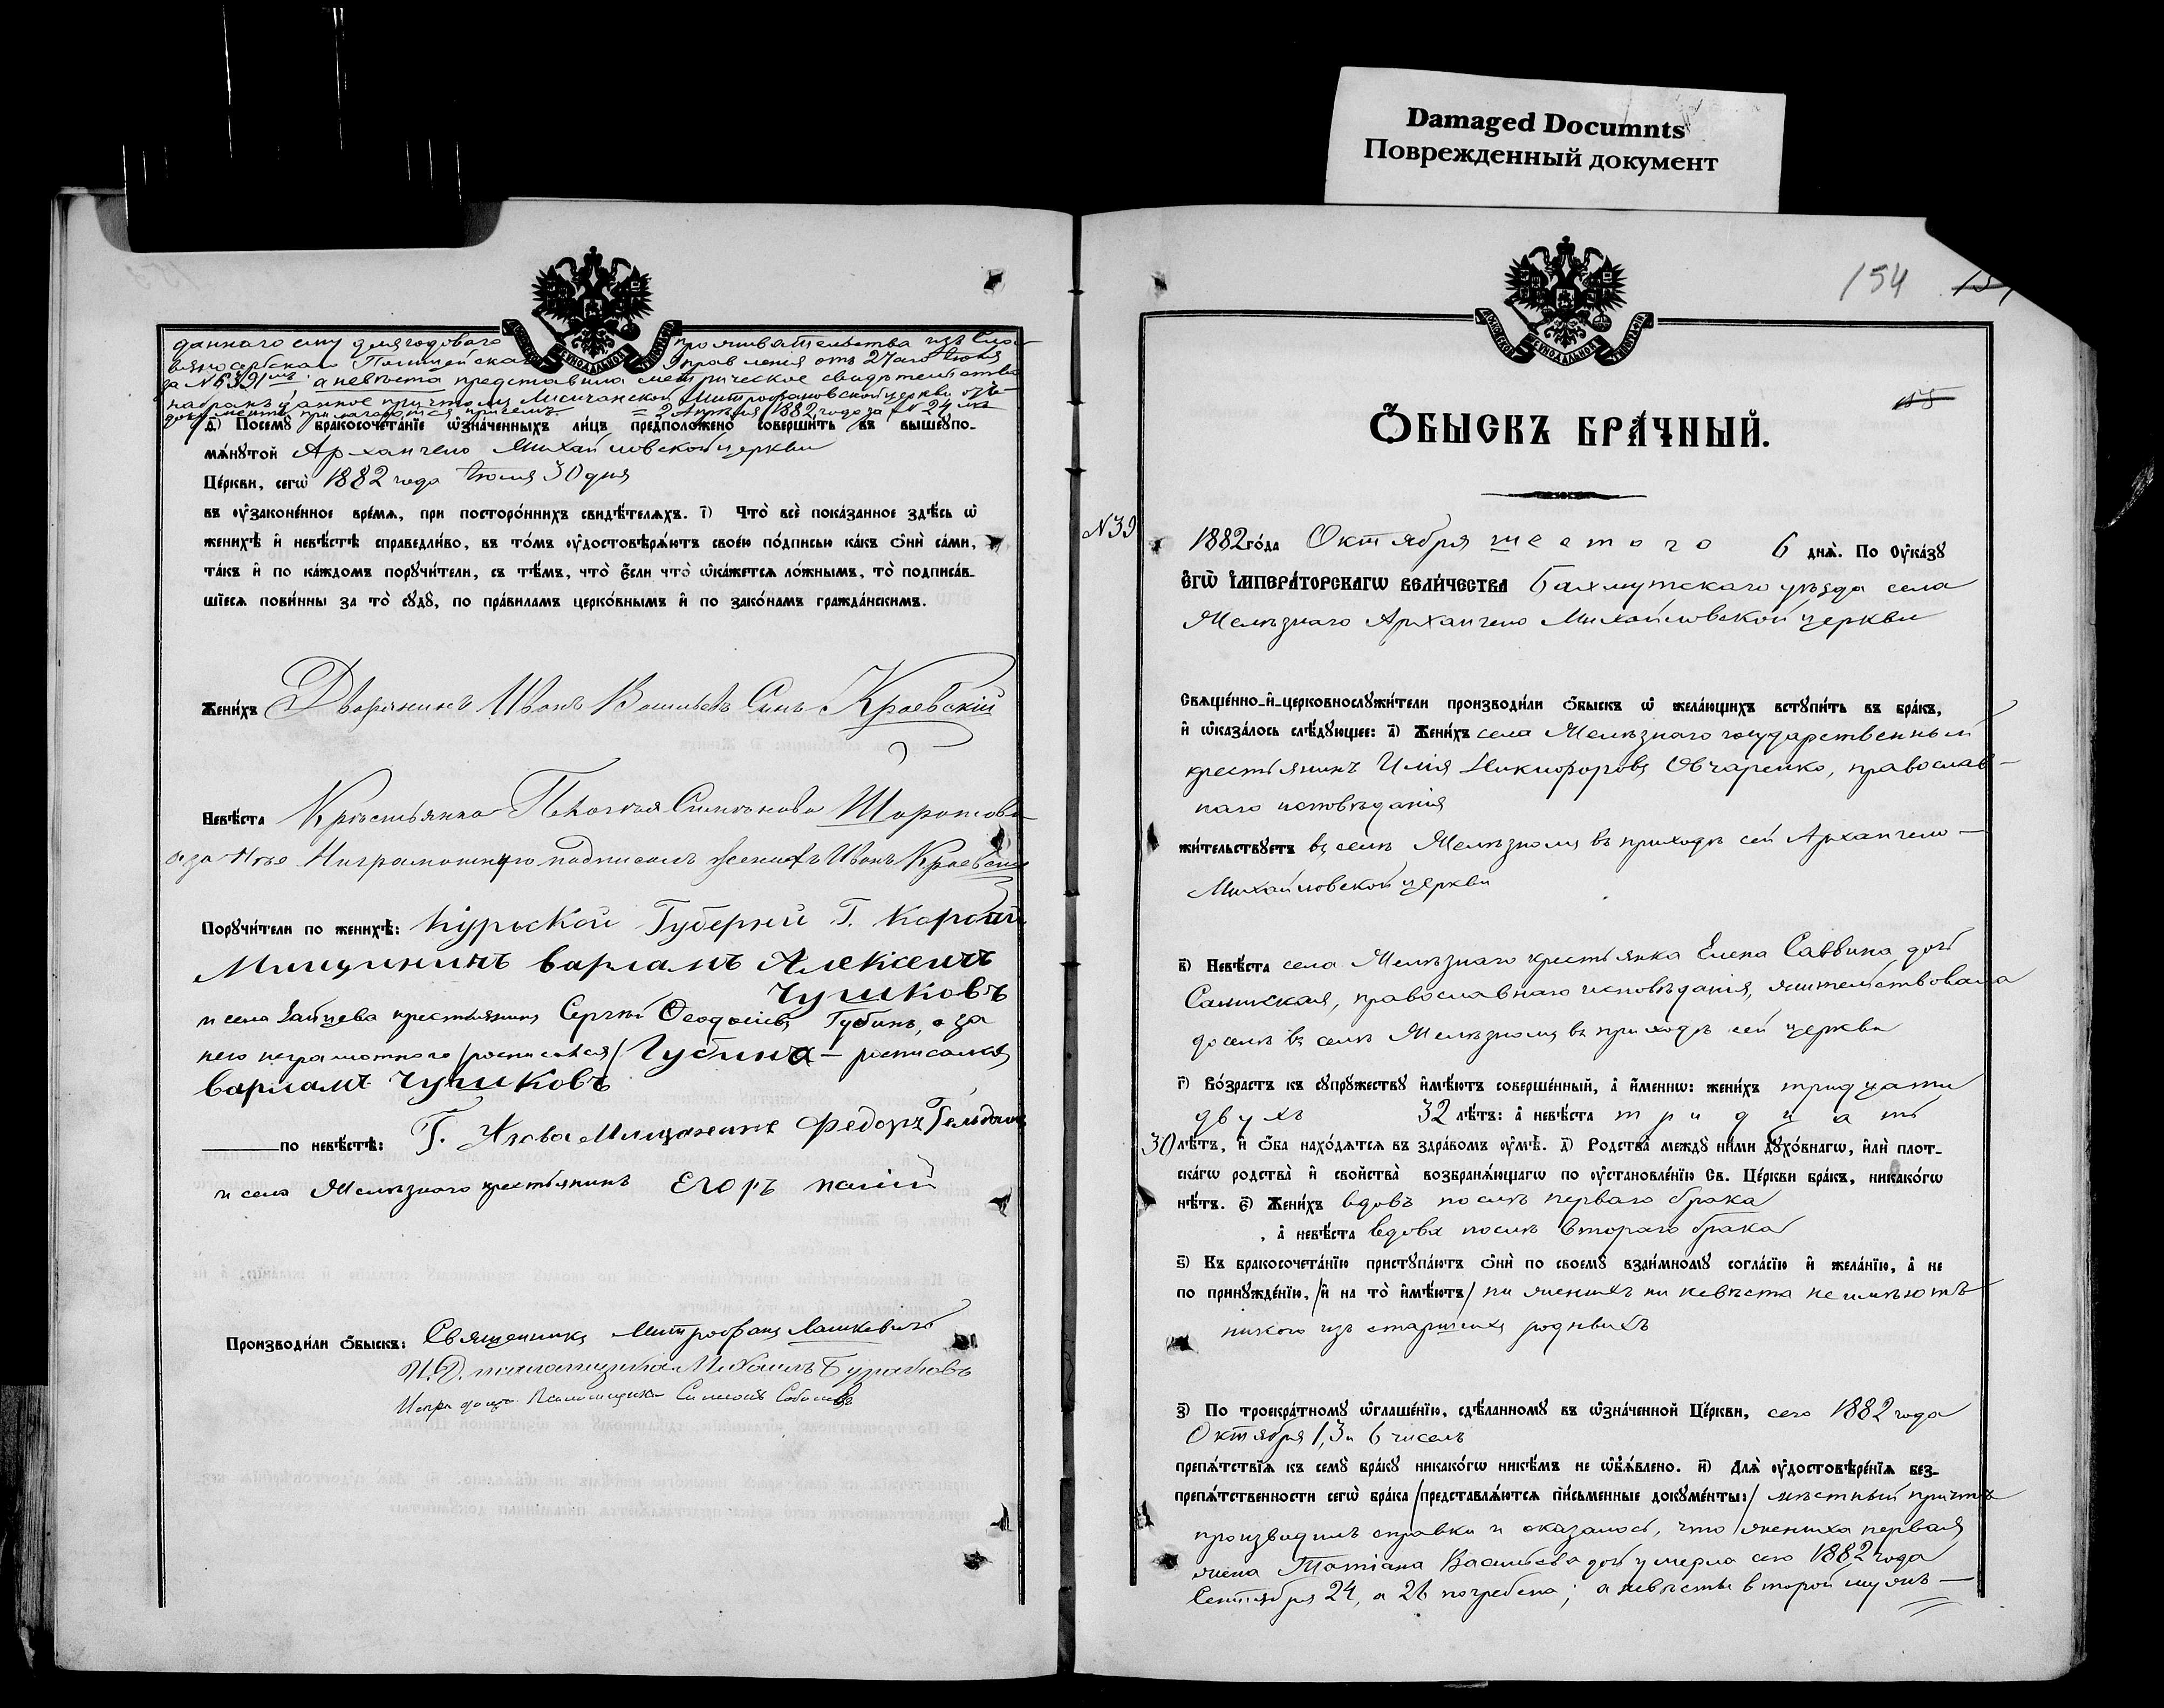 Damaged Documnts
Поврежденный документ
даннаго ему для годоваго проживательства изъ Сла-
вяносербскаго Полицейскаго Управленія отъ 27аго Іюня
за №6391мъ, а невѣста представила метрическое свидѣтельство
на бракъ, данное причтомъ Лисичанской Митрофановской церкви
документы прилагаются причемъ = 2 Апрѣля 1882 года за №24мъ
д҃) Посемꙋ бракосочета́нїе ѡ҆зна́ченныхъ ли́цъ предположено соверши́ть въ вышеꙋпо-
мѧ́нꙋтой Архангело Михайловской церкви
Це́ркви, сегѡ̀ 1882 года Іюля 30 дня
въ ᲂу҆законе́нное вре́мѧ, при посторо́ннихъ свидѣ́телѧхъ. і҃) Что̀ всѐ пока́занное здѣ́сь ѡ҆
женихѣ̀ и҆ невѣ́стѣ справедли́во, въ то́мъ ᲂу҆достовѣрѧ́ютъ свое́ю по́дписью ка́къ ѻ҆нѝ са́ми,
та́къ и҆ по ка́ждомъ порꙋчи́тели, съ тѣ́мъ, что̀ є҆́сли что̀ ѡ҆ка́жетсѧ ло́жнымъ, то̀ подписа́в-
шїесѧ пови́нны за то̀ сꙋдꙋ̀, по пра́виламъ церко́внымъ и҆ по зако́намъ гражда́нскимъ.
Жени́хъ Дворянинъ Иванъ Васильевъ Сынъ Краевскій
Невѣ́ста Крестьянка Пелагѣя Симеонова Шарапова
а за Нею Ниграмотную подписалъ женихъ Иванъ Краевскій
Порꙋчи́тели по женихѣ̀: Курьской Губерніи Г. Корочи
Мищининъ варламъ Алексеичъ
Чушковъ
и села Зайцева крестьянинъ Сергѣй Ѳеодосіевъ Губинъ, а за
него неграмотного /росписался/ Губина — росписался
варламъ чушковъ
по невѣ́стѣ: Г. Азова Мищанинъ Федоръ
и села Желѣзнаго крестьянинъ Егоръ
Производи́ли ѻ҆́быскъ: Священникъ Митрофанъ Лашкевичъ
И.Д. псаломщика Михаилъ Бурлаковъ
Испр долж. Псаломщика Симеонъ
154
155
Ѻ҆́БЫСКЪ БРА́ЧНЫЙ.
№39
1882 го́да Октября шестого 6 днѧ̀. По ᲂу҆ка́зꙋ
є҆гѡ̀ і҆мпера́торскагѡ вели́чества Бахмутскаго уѣзда села
Желѣзнаго Архангело Михайловской церкви
Свѧще́нно-и҆-церковнослꙋжи́тели производи́ли ѻ҆́быскъ ѡ҆ жела́ющихъ встꙋпи́ть въ бра́къ,
и҆ ѡ҆каза́лось слѣ́дꙋющее: а҃) Жени́хъ села Желѣзнаго государственный
крестьянинъ Илія Никифоровъ Овчаренко, православ-
наго исповѣданія
жи́тельствꙋетъ въ селѣ Желѣзномъ въ приходѣ сей Архангело-
Михайловской церкви
в҃) Невѣ́ста села Желѣзнаго крестьянка Елена Саввина дочь
православнаго исповѣданія, жительствовала
доселѣ въ селѣ Желѣзномъ въ приходѣ сей церкви
г҃) Во́зрастъ къ сꙋпрꙋжествꙋ и҆мѣ́ютъ соверше́нный, а҆ и҆́меннѡ: жени́хъ тридцати
двухъ 32 лѣ́тъ: а҆ невѣ́ста тридцать
30 лѣ́тъ, и҆ ѻ҆́ба нахо́дѧтсѧ въ здра́вомъ ᲂу҆мѣ̀. д҃) Родства̀ междꙋ ни́ми дꙋхо́внагѡ, и҆лѝ плот-
ска́гѡ родства̀ и҆ свойства̀ возбранѧ́ющагѡ по ᲂу҆становле́нїю Св. Це́ркви бра́къ, никако́гѡ
нѣ́тъ. є҃) Жени́хъ вдовъ послѣ перваго брака
, а҆ невѣ́ста вдова послѣ втораго брака
ѕ҃) Къ бракосочета́нїю пристꙋпа́ютъ ѻ҆нѝ по своемꙋ̀ взаи́мномꙋ согла́сїю и҆ жела́нїю, а҆ не
по принꙋжде́нїю, /и҆ на то̀ и҆мѣ́ютъ/ ни женихъ ни невѣста не имѣютъ
никого изъ старшихъ родныхъ
з҃) По троекра́тномꙋ ѡ҆глаше́нїю, сдѣ́ланномꙋ въ ѡ҆зна́ченной Це́ркви, сего 1882 года
Октября 1, 3 и 6 числъ
препѧ́тствїѧ къ семꙋ̀ бра́кꙋ никако́гѡ никѣ́мъ не ѡ҆бъѧ́влено. и҃) Длѧ̀ ᲂу҆достовѣре́нїѧ без-
препѧ́тственности сегѡ̀ бра́ка /представлѧ́ютсѧ пи́сьменные докꙋме́нты:/ мѣстный причтъ
производилъ справки и оказалось, что жениха первая
жена Татіана Васильева дочь умерла сего 1882 года
Сентября 24, а 26 погребена; а невѣсты второй мужъ —